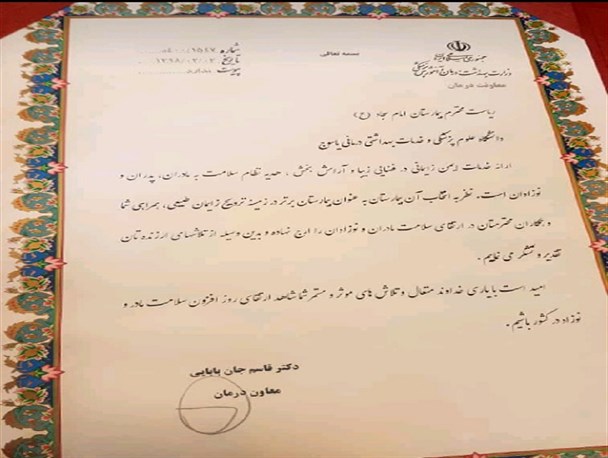 بسمه تعالی
شماره ۴۰۰/۱۵۴۷
تاریخ ۱۳۹۸/۰۲/۰۲
پیوست ندارد
وزارت بهداشت، درمان و آموزش پزشکی
معاونت درمان
ریاست محترم بیمارستان امام سجاد (ع)
دانشگاه علوم پزشکی و خدمات بهداشتی درمانی یاسوج
ارائه خدمات ایمن زایمانی در فضایی زیبا و آرامش بخش، هدیه نظام سلامت به مادران، پدران و
نوزادان است. نظر به انتخاب آن بیمارستان به عنوان بیمارستان برتر در زمینه ترویج زایمان طبیعی، همراهی شما
و همکاران محترمتان در ارتقای سلامت مادران و نوزادان را ارج نهاده و بدین وسیله از تلاشهای ارزنده تان
تقدیر و تشکر می نمایم.
امید است با یاری خداوند متعال و تلاش های موثر و مستمر شما شاهد ارتقای روز افزون سلامت مادر و
نوزاد در کشور باشیم.
دکتر قاسم جان بابایی
معاون درمان